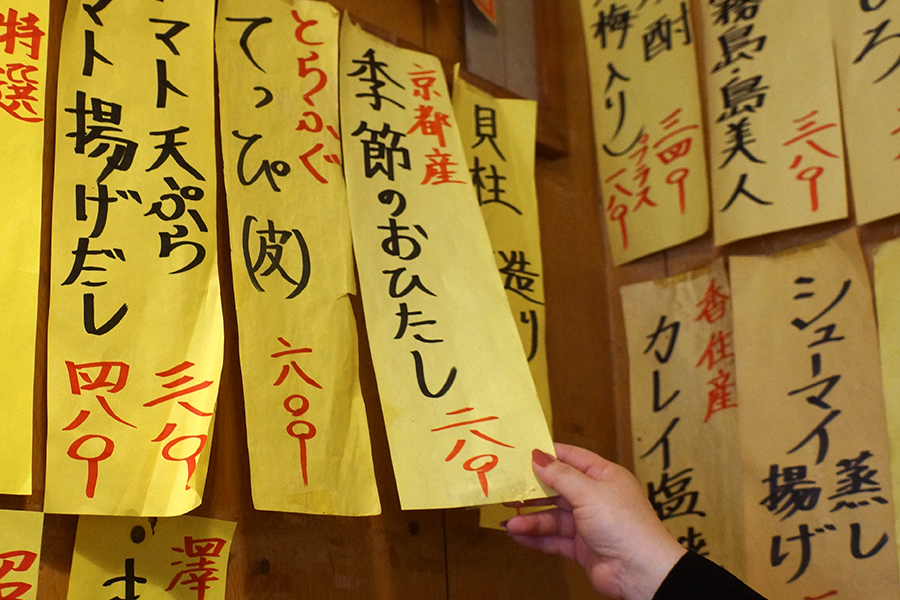 梅入り)
酎
グラス
一八〇
三四〇
霧島・島美人
三八〇
京都産
季節のおひたし
二八〇
貝柱
造り
とらふぐ
てっぴ(皮)
六八〇
マト 天ぷら
三八〇
マト 揚げだし
四八〇
特選
香住産
カレイ塩
シューマイ
蒸し
揚げ
澤
昭